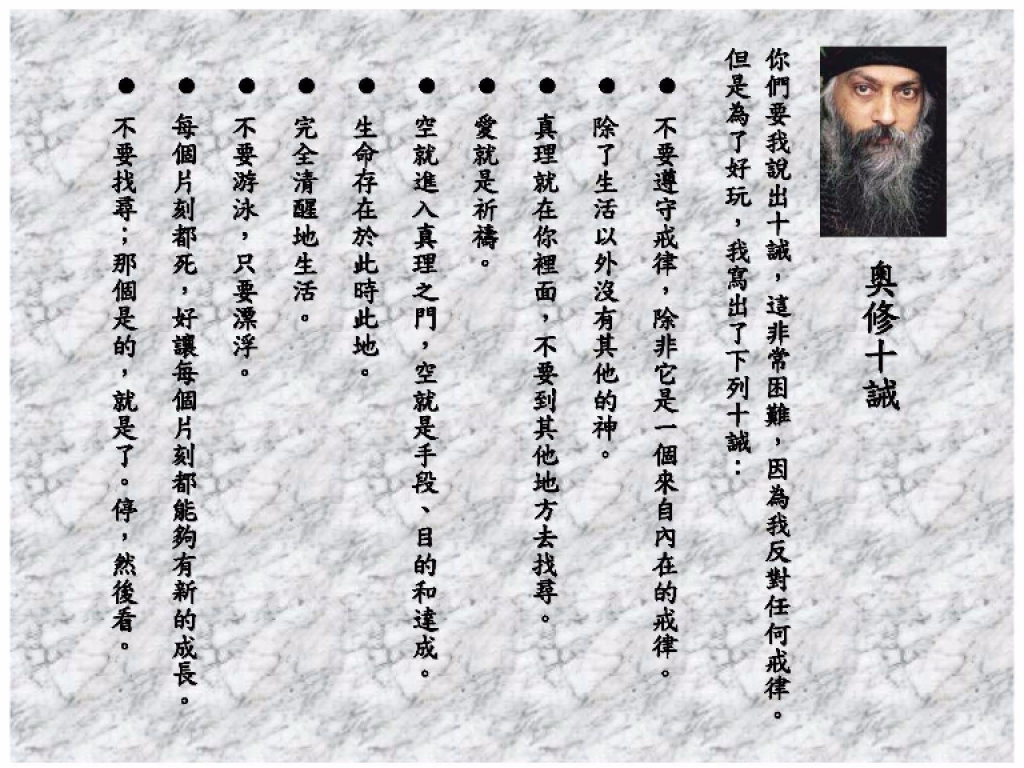 奧修十誡
你們要我說出十誡，這非常困難，因為我反對任何戒律。
但是為了好玩，我寫出了下列十誡：
● 不要遵守戒律，除非它是一個來自內在的戒律。
● 除了生活以外沒有其他的神。
● 真理就在你裡面，不要到其他地方去找尋。
● 愛就是祈禱。
● 空就進入真理之門，空就是手段、目的和達成。
● 生命存在於此時此地。
● 完全清醒地生活。
● 不要游泳，只要漂浮。
● 每個片刻都死，好讓每個片刻都能夠有新的成長。
● 不要找尋；那個是的，就是了。停，然後看。